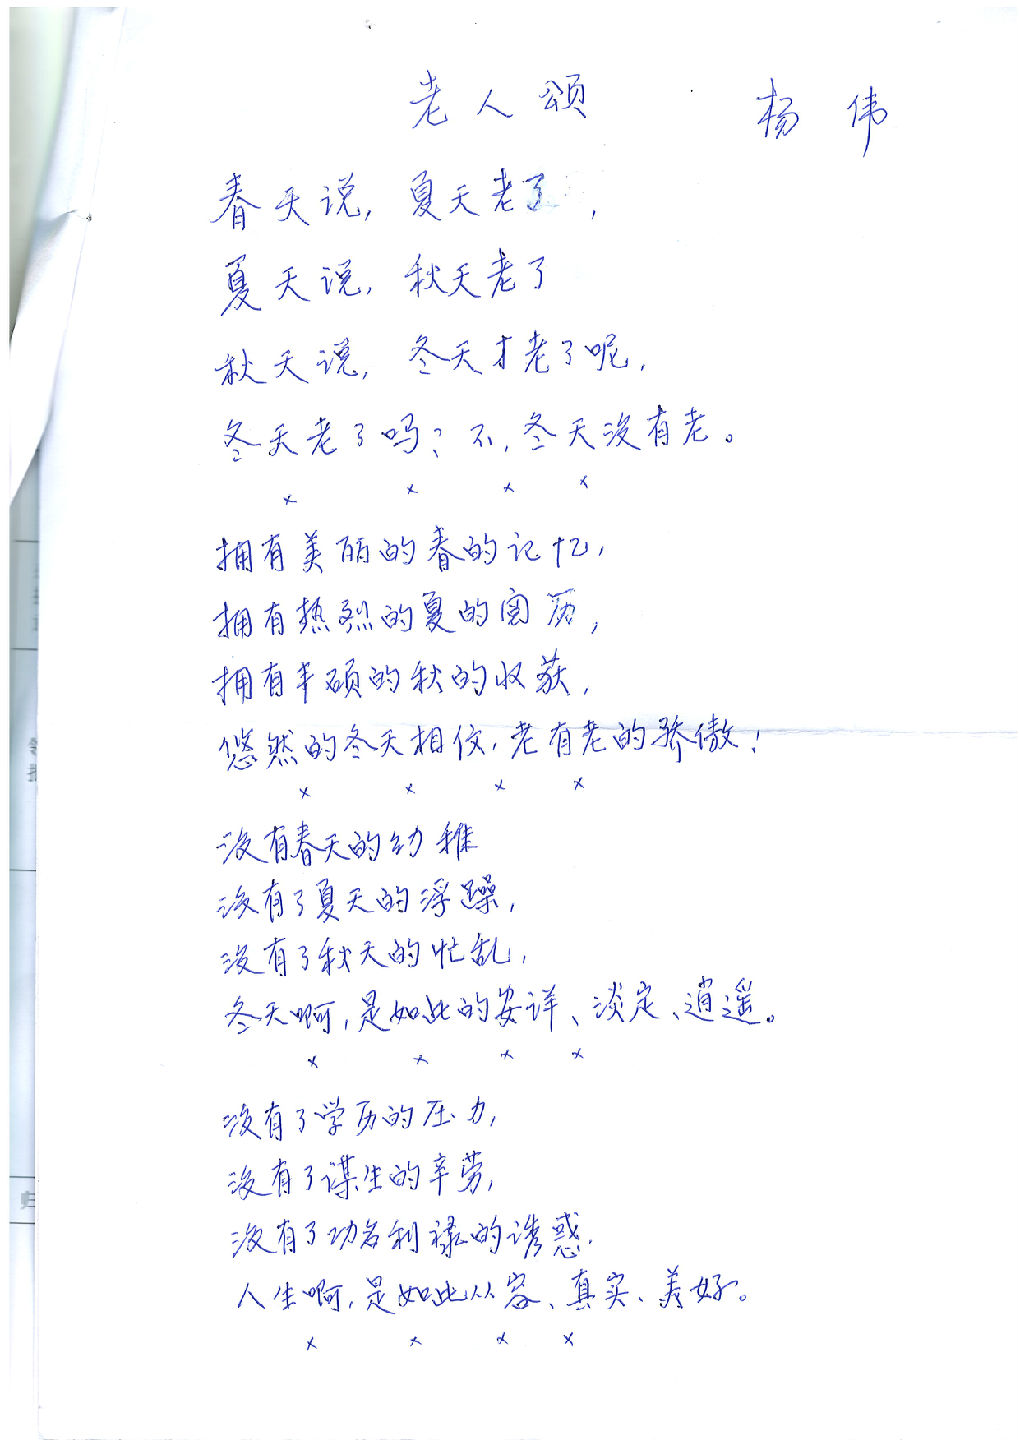 老人颂 杨伟
春天说，夏天老了，
夏天说，秋天老了
秋天说，冬天才老了呢，
冬天老了吗？不，冬天没有老。
× × × ×
拥有美丽的春的记忆，
拥有热烈的夏的阅历，
拥有丰硕的秋的收获，
悠然的冬天相伩，老有老的骄傲！
× × × ×
没有春天的幼稚
没有了夏天的浮躁，
没有了秋天的忙乱，
冬天啊，是如此的安详、淡定、逍遥。
× × × ×
没有了学历的压力，
没有了谋生的辛劳，
没有了功名利禄的诱惑，
人生啊，是如此从容、真实、美好。
× × × ×